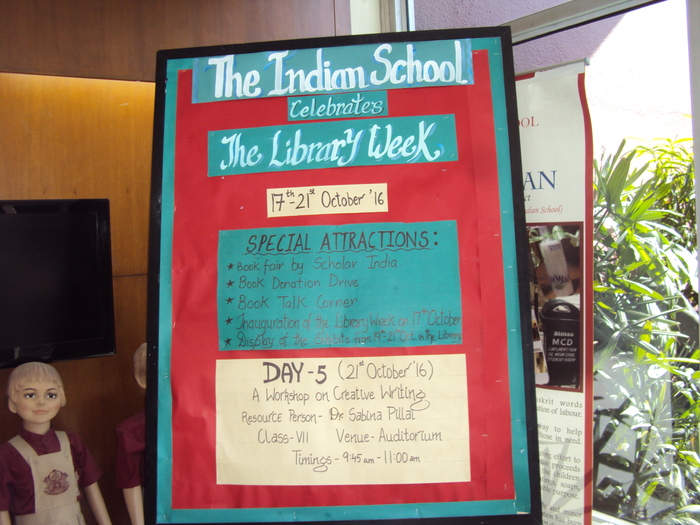 The Indian School
Celebrates
The Library Week
17th-21st October '16
SPECIAL ATTRACTIONS:
★ Book fair by Scholar India
★ Book Donation Drive
★ Book Talk Corner
★ Inauguration of the Library Week on 17th October
★ Display of the Exhibits from 19th-21st Oct. in the Library
DAY-5 (21st October '16)
A Workshop on Creative Writing
Resource Person- Dr. Sabina Pillai
Class-VII Venue-Auditorium
Timings-9:45am-11:00am
OOL
AN
ct
dian School)
MCD
skrit words
tion of labour.
way to help
those in need.
effort to
proceeds
children
soaps,
purpose.
and minor